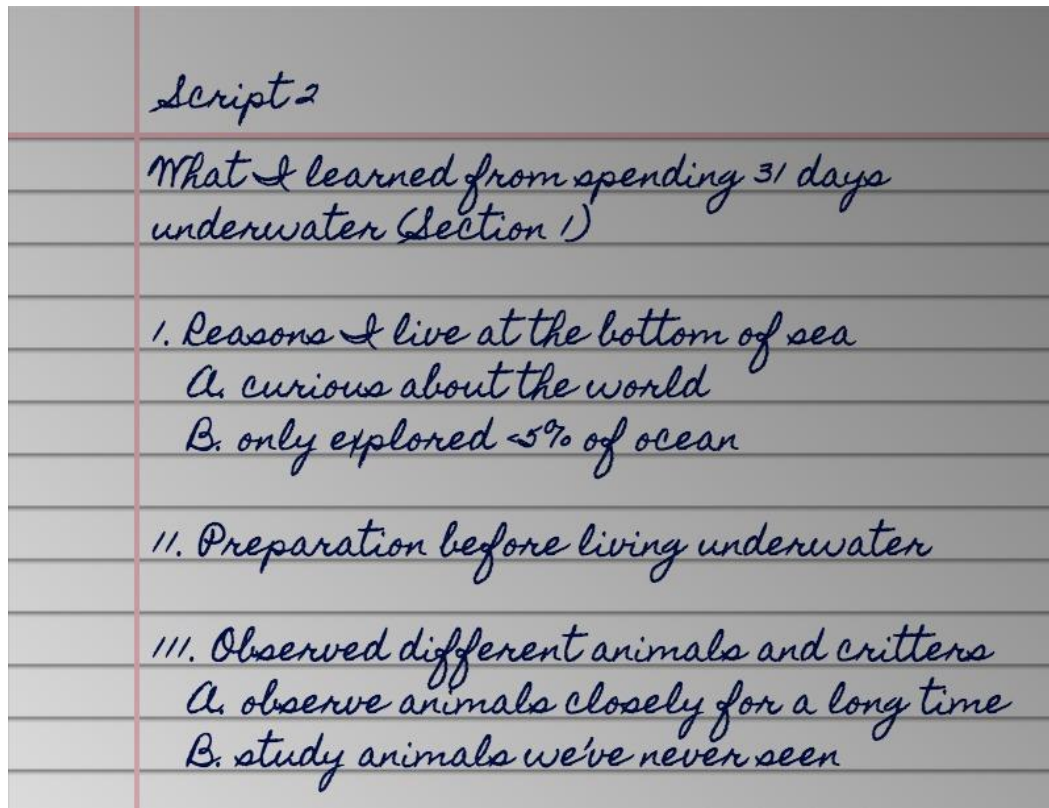 Script 2
What I learned from spending 31 days
underwater (Section 1)
1. Reasons I live at the bottom of sea
A. curious about the world
B. only explored <5% of ocean
11. Preparation before living underwater
111. Observed different animals and critters
A. observe animals closely for a long time
B. study animals we've never seen